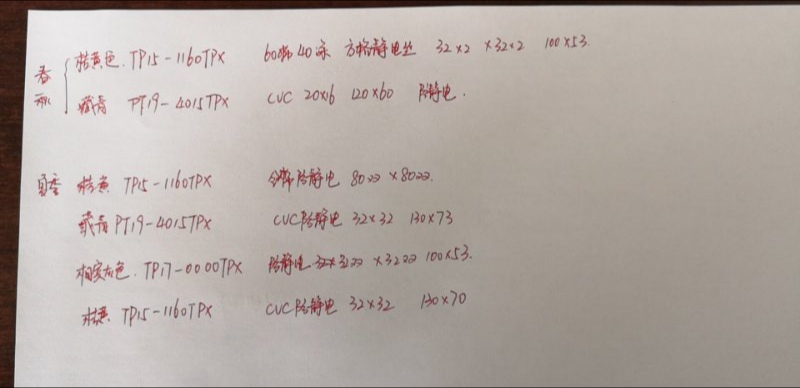 春秋 桔黄色. TP15-1160TPX 60棉40涤 方格静电丝 32×2×32×2 100×53.
藏青 PT19-4015TPX CVC 20×16 120×60 防静电.
夏季 桔黄 TP15-1160TPX 全棉防静电 80 × 80
藏青 PT19-4015TPX CVC防静电 32×32 130×73
灰色. TP17-0000TPX 防静电 × 100×53.
桔黄 TP15-1160TPX CVC防静电 32×32 130×70